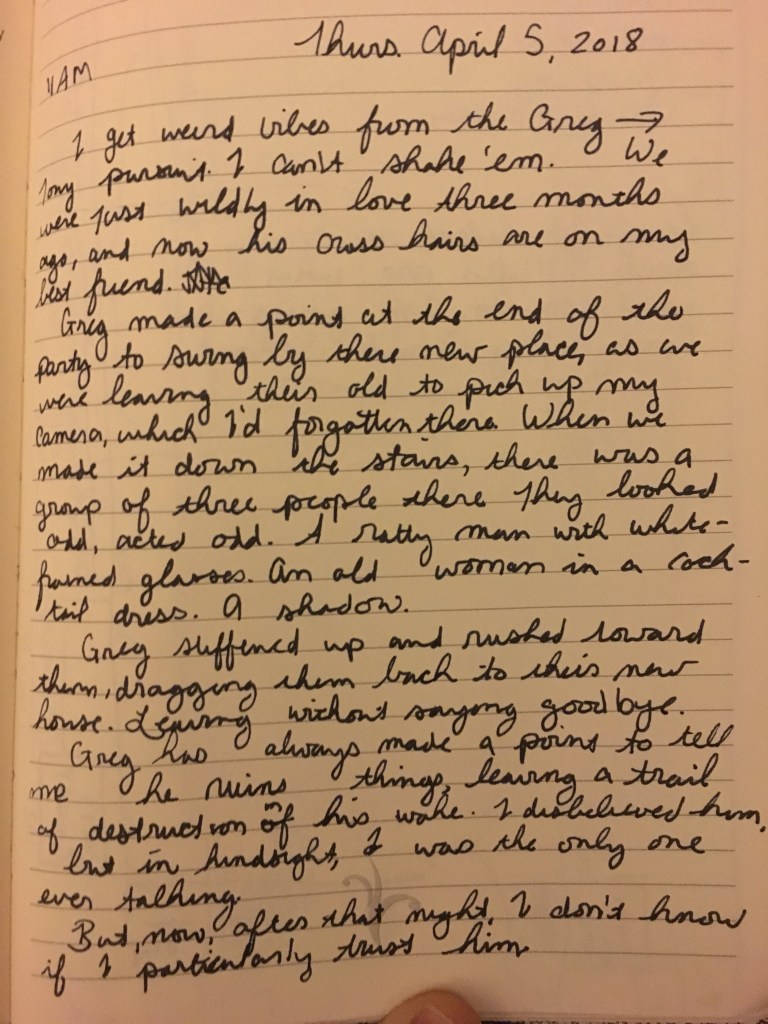 Thurs. April 5, 2018
11AM
I get weird vibes from the Greg →
Tony pursuit. I can't shake 'em. We
were just wildly in love three months
ago, and now his cross hairs are on my
best friend.
Greg made a point at the end of the
party to swing by there new place, as we
were leaving their old to pick up my
camera, which I'd forgotten there. When we
made it down the stairs, there was a
group of three people there They looked
odd, acted odd. A ratty man with white-
framed glasses. An old woman in a cock-
tail dress. A shadow.
Greg stiffened up and rushed toward
them, dragging them back to their new
house. Leaving without saying goodbye.
Greg has always made a point to tell
me he ruins things, leaving a trail
of destruction in his wake. I disbelieved him,
but in hindsight, I was the only one
ever talking.
But, now, after that night, I don't know
if I particularly trust him.